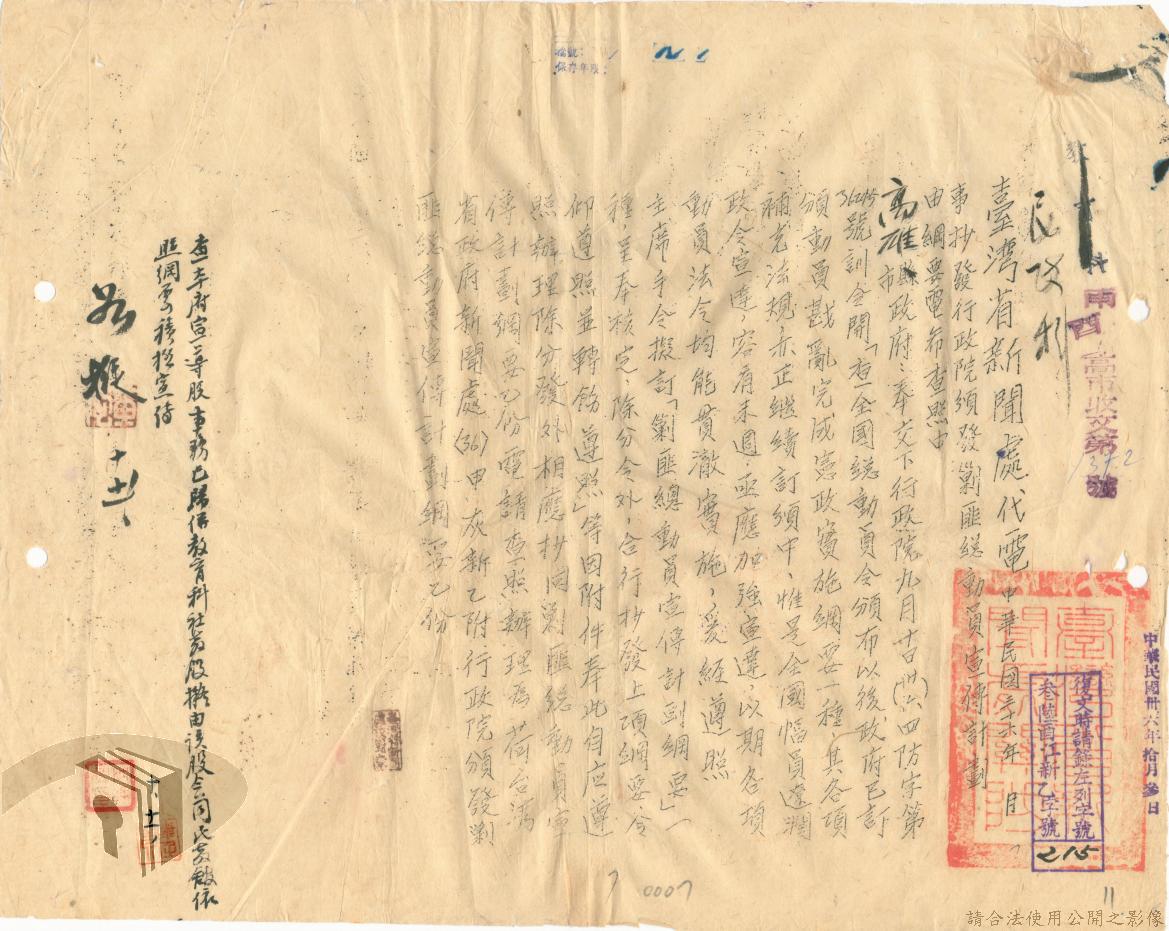 檔號：
保存年限：
民政科
雨酉
高市收文第
號
1372
臺灣省新聞處代電 中華民國三十六年 月
事抄發行政院頒發剿匪總動員宣傳計劃
由綱要電希查照由
高雄市政府：奉交下行政院九月十日(卅六)四防字第
36215號訓令開「查全國總動員令頒布以後政府已訂
頒動員戡亂完成憲政實施綱要一種，其各項
補充法規亦正繼續訂頒中，惟是全國幅員遼濶
政令宣達，容有未週，亟應加強宣達，以期各項
動員法令均能貫澈實施，爰經遵照
主席手令擬訂「剿匪總動員宣傳計劃綱要」一
種，呈奉核定，除分令外，合行抄發上項綱要，令
仰遵照並轉飭遵照」等因附件奉此自應遵
照辦理除分發外相應抄同剿匪總動員宣
傳計劃綱要乙份電請查照辦理為荷台灣
省政府新聞處(36)申灰新乙附行政院頒發剿
匪總動員宣傳計劃綱要乙份
中華民國卅六年拾月參日
復文時請錄左列字號
參陸酉江新乙字號
215
查本府宣導股事務已歸併教育科社教股擬由該股會同民教館依
照綱要積極宣傳
十、十一、
7
0007
11
請合法使用公開之影像